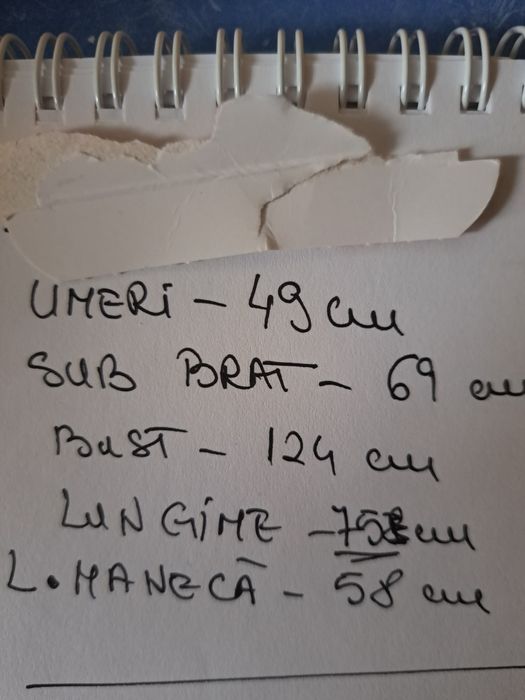 UMERI - 49 cm
SUB BRAT - 69 cm
BUST - 124 cm
LUNGIME - cm
L. MANECĂ - 58 cm